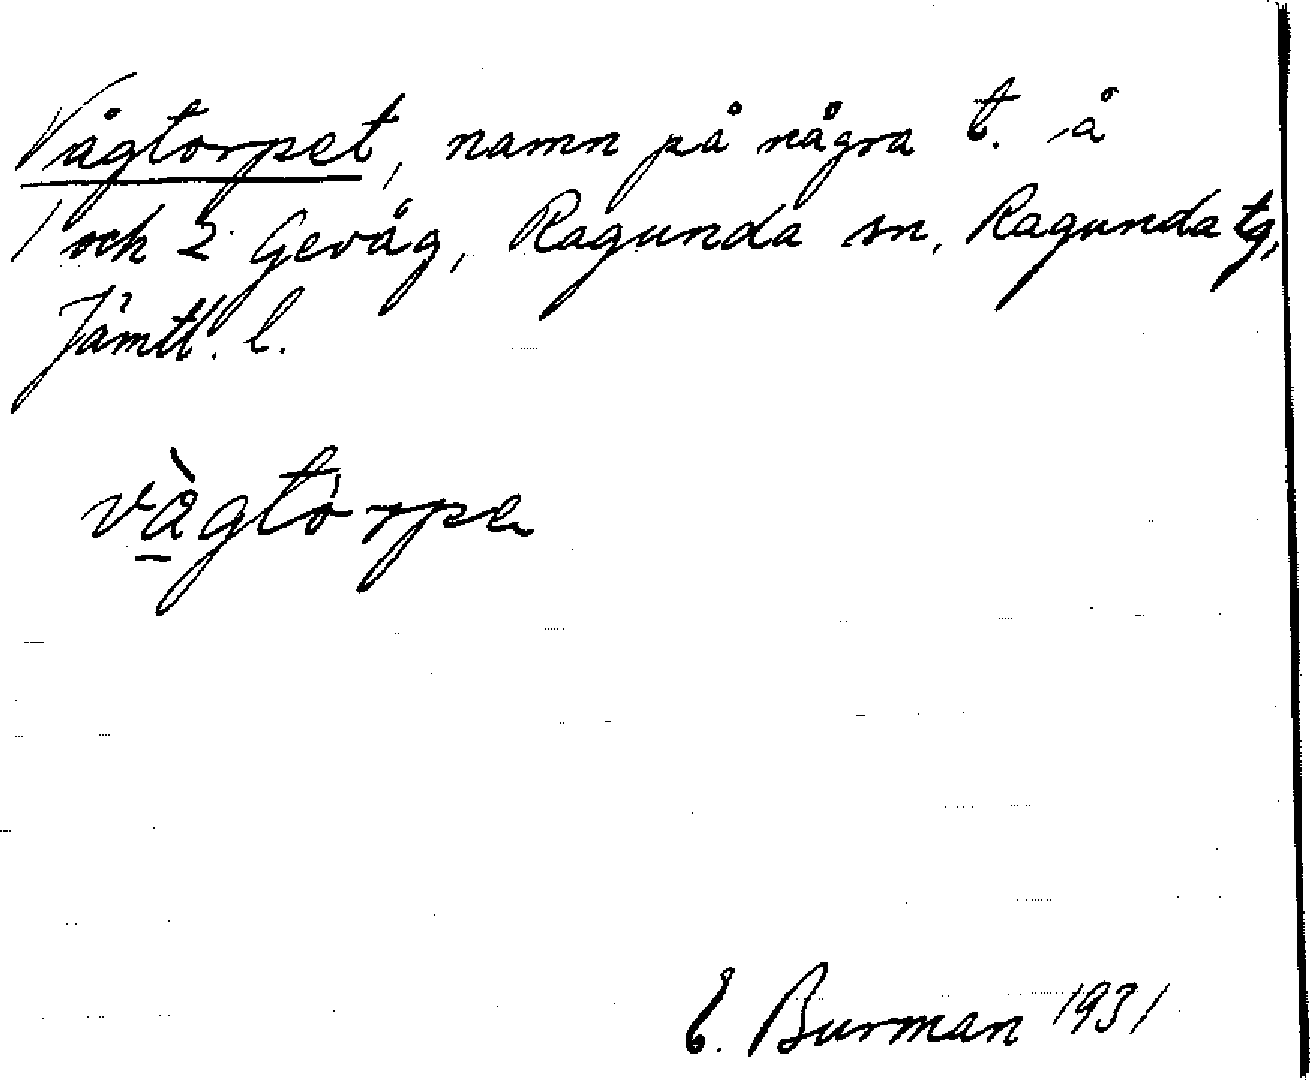 Vågtorpet, namn på några t. å
1 och 2 Gevåg, Ragunda sn, Ragunda tg,
Jämtl. l.
và̱gtórpa
E. Burman 1931